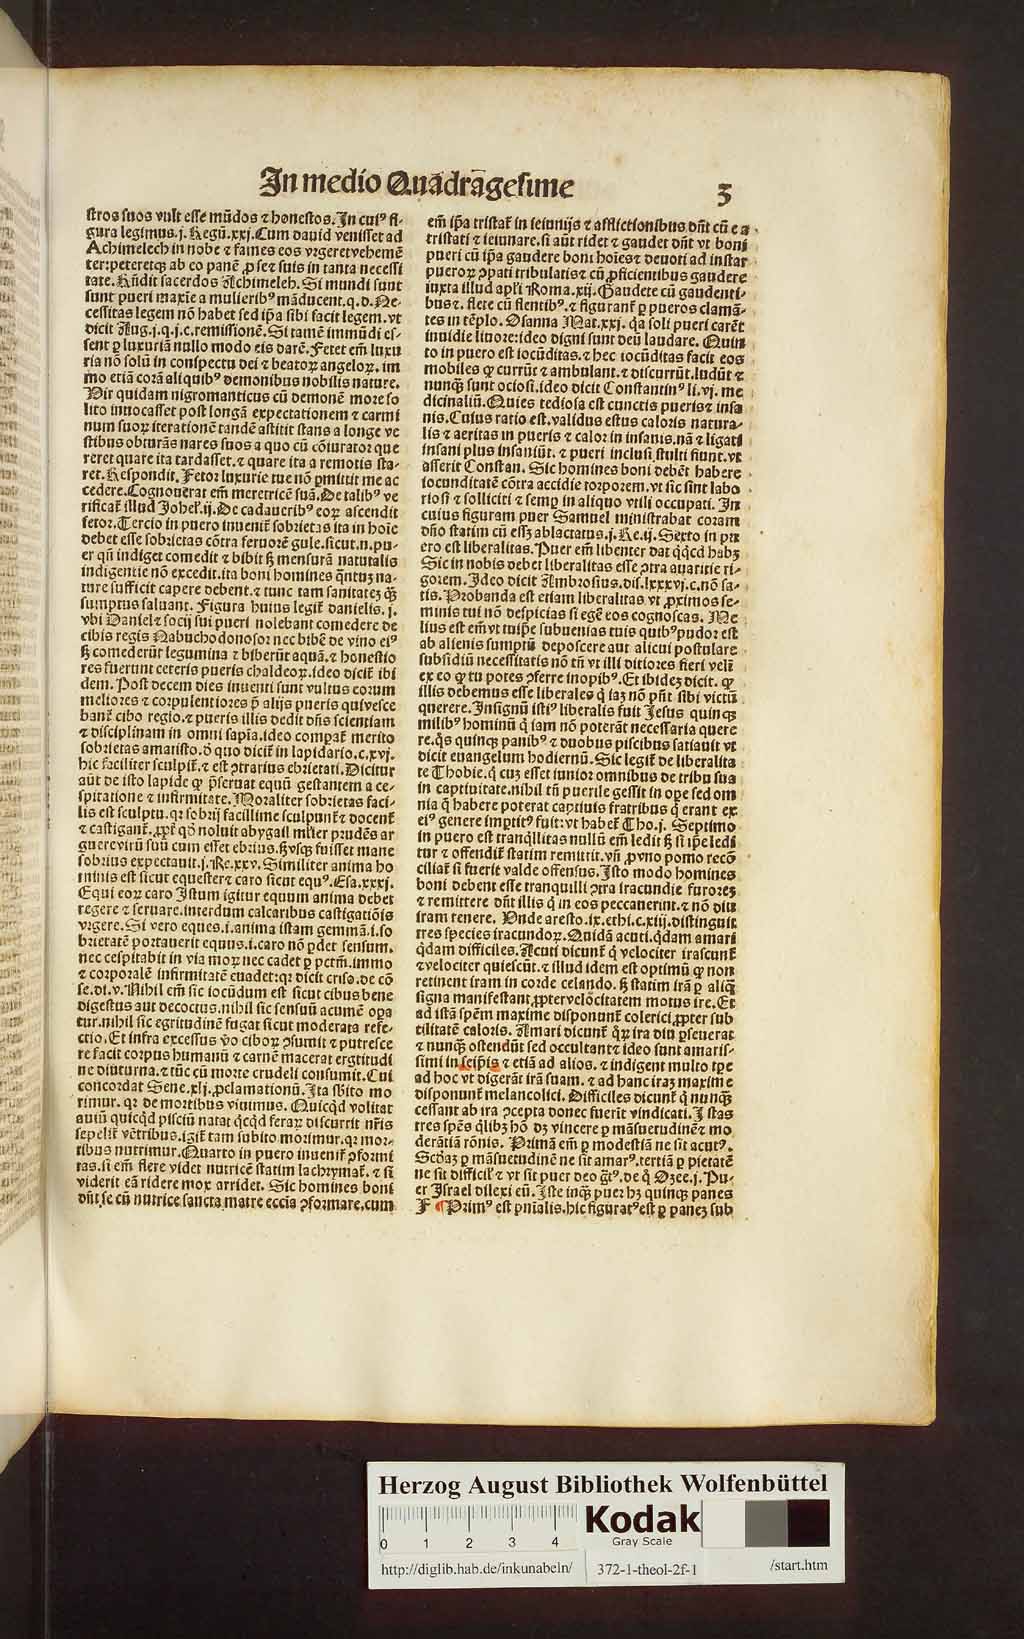 In medio Quadrãgesime
3
stros suos vult esse mũdos ⁊ honestos. In cuiꝰ fi-
gura legimus. j. Regũ. xxj. Cum dauid venisset ad
Achimelech in nobe ⁊ fames eos vrgeret vehemẽ
ter: peteretqꝫ ab eo panẽ ꝓ se ⁊ suis in tanta necessi
tate. Rñdit sacerdos Achimeleh. Si mundi sunt
sunt pueri maxĩe a mulieribꝰ mãducent. q. d. Ne-
cessitas legem nõ habet sed ip̃a sibi facit legem. vt
dicit Aug. j. q. j. c. remissionẽ. Si tamẽ immũdi es-
sent ꝑ luxuriã nullo modo eis darẽ. Fetet em̃ luxu
ria nõ solũ in conspectu dei ⁊ beatoꝝ angeloꝝ. im
mo etiã corã aliquibꝰ demonibus nobilis nature.
Vir quidam nigromanticus cũ demonẽ more so
lito inuocasset post longã expectationem ⁊ carmi
num suoꝝ iterationẽ tandẽ astitit stans a longe ve
stibus obturãs nares suos a quo cũ cõiurator que
reret quare ita tardasset. ⁊ quare ita a remotis sta-
ret. Respondit. Fetor luxurie tue nõ ꝑmittit me ac
cedere. Cognouerat em̃ meretricẽ suã. De talibꝰ ve
rificat᷑ illud Johel᷑. ij. De cadaueribꝰ eoꝝ ascendit
fetor. Tercio in puero inuenit᷑ sobrietas ita in hoĩe
debet esse sobrietas cõtra feruorẽ gule. sicut. n. pu-
er qñ indiget comedit ⁊ bibit sꝫ mensurã naturalis
indigentie nõ excedit. ita boni homines q̃ntuꝫ na-
ture sufficit capere debent. ⁊ tunc tam sanitateꝫ qꝫ
sumptus saluant. Figura huius legit᷑ danielis. j.
vbi Daniel ⁊ socij sui pueri nolebant comedere de
cibis regis Nabuchodonosor nec bibẽ de vino eiꝰ
sꝫ comederũt legumina ⁊ biberũt aquã. ⁊ honestio
res fuerunt ceteris pueris chaldeoꝝ. ideo dicit᷑ ibi
dem. Post decem dies inuenti sunt vultus eorum
meliores ⁊ corpulentiores p̃ alijs pueris qui vesce
bant᷑ cibo regio. ⁊ pueris illis dedit dñs scientiam
⁊ disciplinam in omni sapĩa. ideo compat᷑ merito
sobrietas amaristo. ð quo dicit᷑ in lapidario. c. xvj.
hic faciliter sculpit᷑. ⁊ est ꝯtrarius ebrietati. Dicitur
aũt de isto lapide ꝙ p̃seruat equũ gestantem a ce-
spitatione ⁊ infirmitate. Moraliter sobrietas faci-
lis est sculptu. qꝛ sobrij facillime sculpunt᷑ ⁊ docent᷑
⁊ castigant᷑. ꝓpt᷑ qð noluit abygail mulier prudẽs ar
guere virũ suũ cum esset ebrius. sꝫ vsqꝫ fuisset mane
sobrius expectauit. j. Re. xxv. Similiter anima ho
minis est sicut equester ⁊ caro sicut equꝰ. Esa. xxxj.
Equi eoꝝ caro Istum igitur equum anima debet
regere ⁊ seruare. interdum calcaribus castigatiõis
vrgere. Si vero eques. i. anima istam gemmã. i. so
brietatẽ portauerit equus. i. caro nõ ꝑdet sensum.
nec cespitabit in via moꝝ nec cadet ꝑ pctm̃. immo
⁊ corporalẽ infirmitatẽ euadet: qꝛ dicit criso. de cõ
se. di. v. Nihil em̃ sic iocũdum est sicut cibus bene
digestus aut decoctus. nihil sic sensuũ acumẽ oꝑa
tur. nihil sic egritudinẽ fugat sicut moderata refe-
ctio. Et infra excessus ꝟo ciboꝝ ꝯsumit ⁊ putresce
re facit corpus humanũ ⁊ carnẽ macerat egritudi
ne diuturna. ⁊ tũc cũ morte crudeli consumit. Cui
concordat Sene. xlj. ꝓclamationũ. Ita sb̃ito mo
rimur. qꝛ de mortibus viuimus. Quicqd̃ volitat
auiũ quicqd̃ pisciũ natat qcq̃d feraꝝ discurrit nr̃is
sepelit᷑ vẽtribus. igit᷑ tam subito morimur. qꝛ mor-
tibus nutrimur. Quarto in puero inuenit᷑ ꝯformi
tas. si em̃ flere videt nutricẽ statim lachrymat᷑. ⁊ si
viderit eã ridere mox arridet. Sic homines boni
dñt se cũ nutrice sancta matre eccĩa ꝯformare. cum
em̃ ip̃a tristat᷑ in ieiunijs ⁊ afflictionibus dñt cũ ea
tristari ⁊ ieiunare. si aũt ridet ⁊ gaudet dñt vt boni
pueri cũ ip̃a gaudere boni hoĩes ⁊ deuoti ad instar
pueroꝝ ꝯpati tribulatis ⁊ cũ ꝓficientibus gaudere
iuxta illud apl᷑i Roma. xij. Gaudete cũ gaudenti-
bus ⁊. flete cũ flentibꝰ. ⁊ figurant᷑ ꝑ pueros clamã-
tes in tẽplo. Osanna Mat. xxj. q̃a soli pueri carẽt
inuidie liuore: ideo digni sunt deũ laudare. Quin
to in puero est iocũditas. ⁊ hec iocũditas facit eos
mobiles ꝙ currũt ⁊ ambulant. ⁊ discurrũt. ludũt ⁊
nunqꝫ sunt ociosi. ideo dicit Constantinꝰ li. vj. me
dicinaliũ. Quies tediosa est cunctis pueris ⁊ insa
nis. Cuius ratio est. validus estus caloris natura-
lis ⁊ aeritas in pueris ⁊ calor in insanis. nã ⁊ ligati
insani plus insaniũt. ⁊ pueri inclusi stulti fiunt. vt
asserit Constan. Sic homines boni debẽt habere
iocunditatẽ cõtra accidie torporem. vt sic sint labo
riosi ⁊ solliciti ⁊ semꝑ in aliquo vtili occupati. In
cuius figuram puer Samuel ministrabat coram
dño statim cũ essꝫ ablactatus. j. Re. ij. Sexto in pu
ero est liberalitas. Puer em̃ libenter dat qd̃qd̃ habꝫ
Sic in nobis debet liberalitas esse ꝯtra auaritie ri-
gorem. Ideo dicit Ambrosius. dis. lxxxvj. c. nõ sa-
tis. Probanda est etiam liberalitas. vt ꝓximos se-
minis tui nõ despicias si egẽ eos cognoscas. Me
lius est em̃ vt tuip̃e subuenias tuis quibꝰ pudor est
ab alienis sumptũ deposcere aut alicui postulare
subsidiũ necessitatis nõ tñ vt illi ditiores fieri velĩt
ex eo ꝙ tu potes ꝯferre inopibꝰ. Et ibideꝫ dicit. ꝙ
illis debemus esse liberales q̃ iaꝫ nõ pñt sibi victũ
querere. Insignũ istiꝰ liberalis fuit Jesus quinqꝫ
milibꝰ hominũ q̃ iam nõ poterãt necessaria quere
re. q̃s quinqꝫ panibꝰ ⁊ duobus piscibus satiauit vt
dicit euangelum hodiernũ. Sic legit᷑ de liberalita
te Thobie. q̃ cuꝫ esset iunior omnibus de tribu sua
in captiuitate. nihil tñ puerile gessit in oꝑe sed om
nia q̃ habere poterat captiuis fratribus q̃ erant ex
eiꝰ genere imꝑtitꝰ fuit: vt habet᷑ Tho. j. Septimo
in puero est tranq̃llitas nullũ em̃ ledit sꝫ si ip̃e ledi
tur ⁊ offendit᷑ statim remittit. vñ ꝓ vno pomo recõ
ciliat᷑ si fuerit valde offensus. Isto modo homines
boni debent esse tranquilli ꝯtra iracundie furoreꝫ
⁊ remittere dñt illis q̃ in eos peccauerint. ⁊ nõ diu
iram tenere. Vnde aresto. ix. ethi. c. xiij. distinguit
tres species iracundoꝝ. Quidã acuti. q̃dam amari
q̃dam difficiles. Acuti dicunt᷑ q̃ velociter irascunt᷑
⁊ velociter quiescũt. ⁊ illud idem est optimũ ꝙ non
retinent iram in corde celando. sꝫ statim irã ꝑ aliq̃
signa manifestant ꝓpter velocitatem motus ire. Et
ad istã spẽm maxime disponunt᷑ colerici ꝓpter sub
tilitatẽ caloris. Amari dicunt᷑ qꝝ ira diu ꝑseuerat
⁊ nunqꝫ ostendũt sed occultant ⁊ ideo sunt amaris-
simi in seip̃is ⁊ etiã ad alios. ⁊ indigent multo tꝑe
ad hoc vt digerãt irã suam. ⁊ ad hanc iraꝫ maxime
disponunt᷑ melancolici. Difficiles dicunt᷑ q̃ nunqꝫ
cessant ab ira ꝯcepta donec fuerĩt vindicati. Istas
tres spẽs q̃libꝫ hõ dꝫ vincere ꝑ mãsuetudinẽ ⁊ mo
derãtiã rõnis. Primã em̃ ꝑ modestiã ne sit acutꝰ.
Scðaꝫ ꝑ mãsuetudinẽ ne sit amarꝰ. tertiã ꝑ pietatẽ
ne sit difficil᷑ ⁊ vt sit puer deo gr̃ꝰ. de q̃ Ozee. j. Pu-
er Israel dilexi eũ. Iste inqꝫ puer hꝫ quinqꝫ panes
F ¶ Primꝰ est pñialis. hic figuratꝰ est ꝑ paneꝫ sub
Herzog August Bibliothek Wolfenbüttel
0 1 2 3 4
Kodak
Gray Scale
http://diglib.hab.de/inkunabeln/ 372-1-theol-2f-1 /start.htm